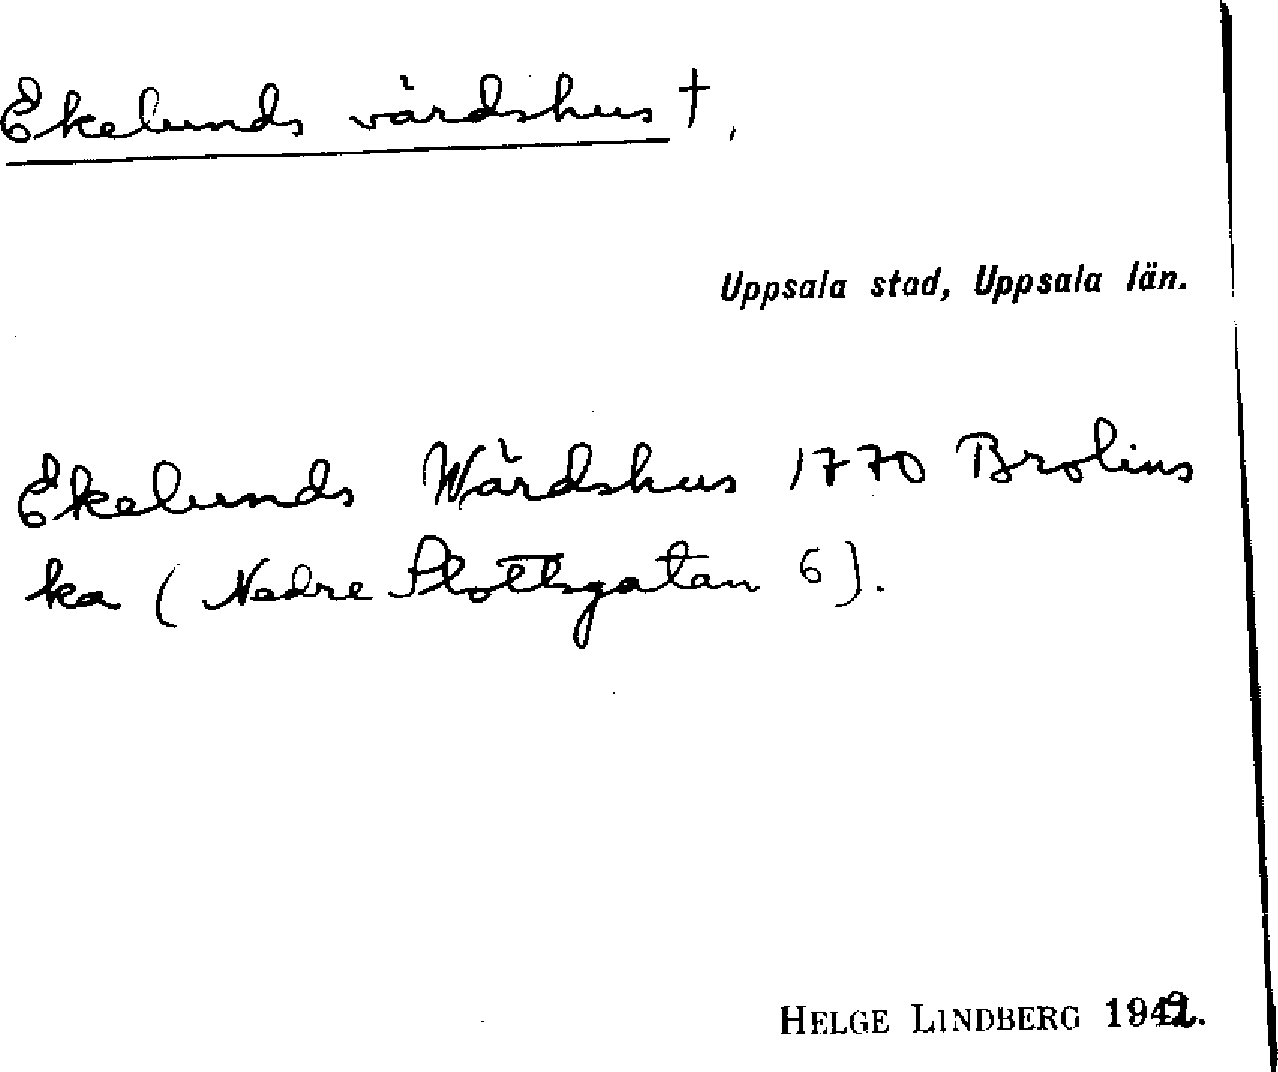 Ekelunds värdshus †.
Uppsala stad, Uppsala län.
Ekelunds Wärdshus 1770 Brolins
ka (Nedre Slottsgatan 6).
HELGE LINDBERG